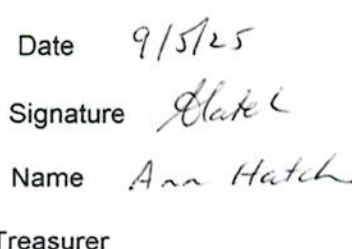 Date 9/5/25
Signature
Name Ann Hatch
Treasurer